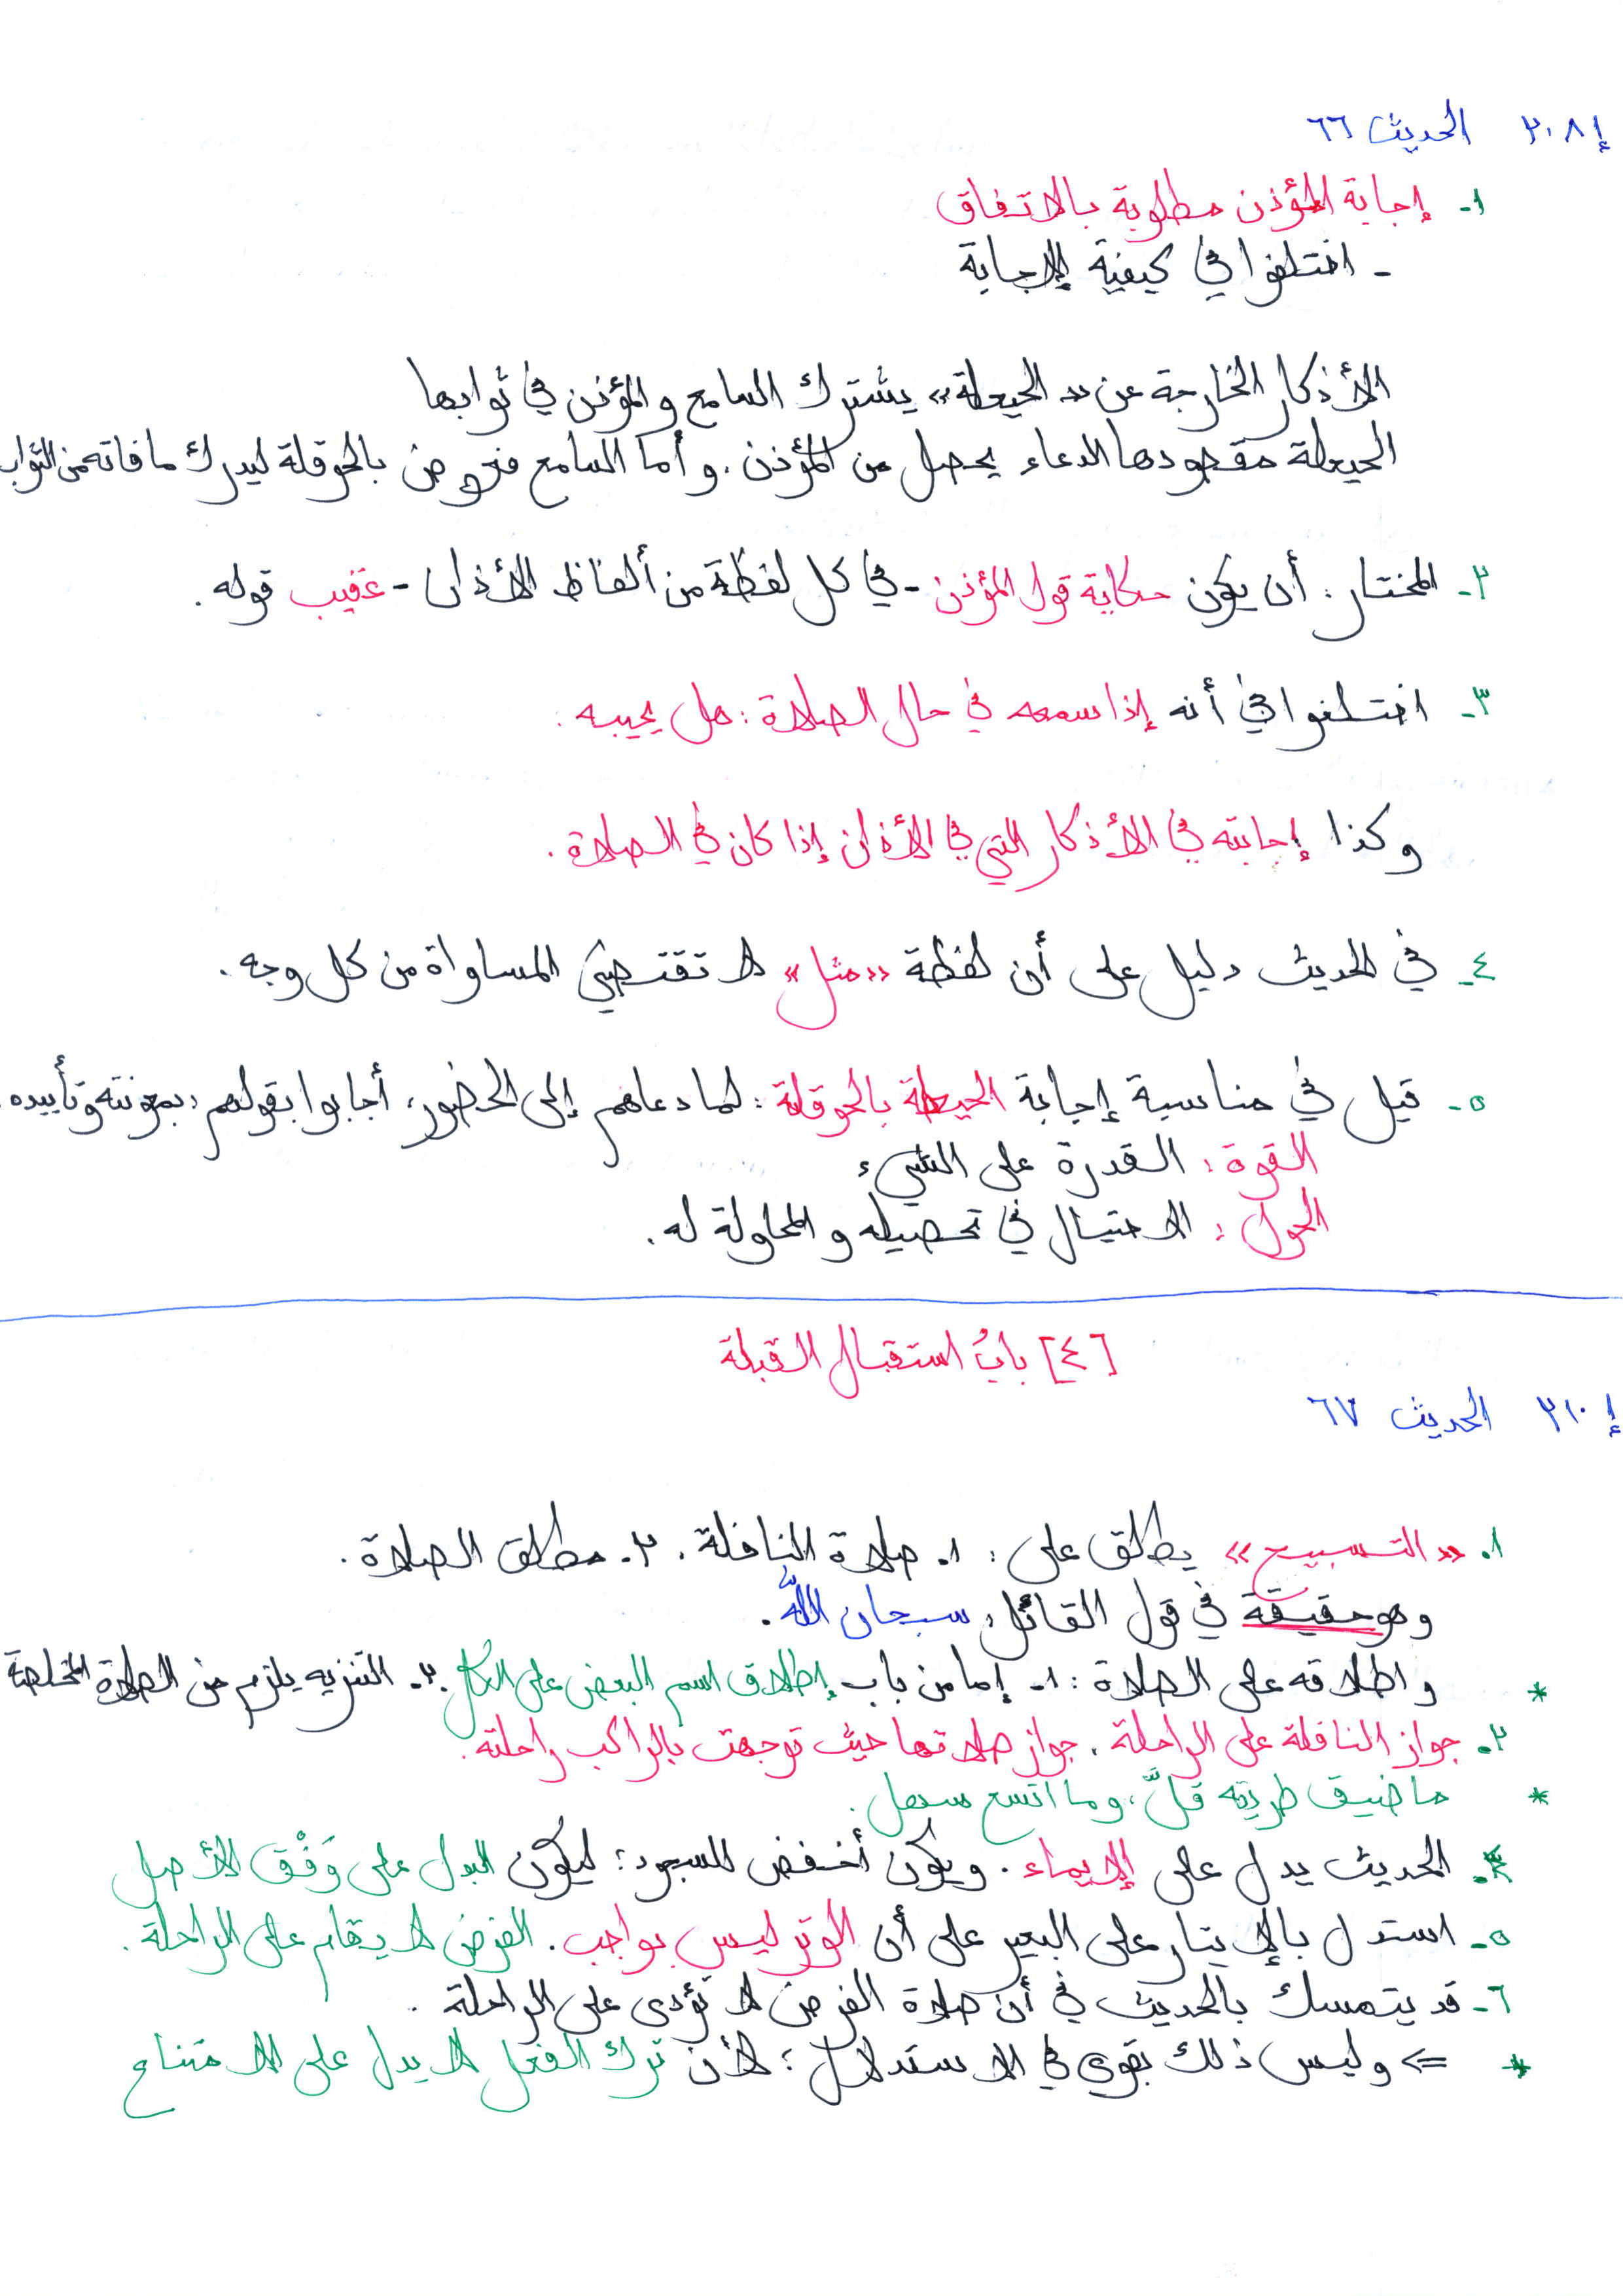 إ ٣٠٨ الحديث ٦٦
١- إجابة المؤذن مطلوبة بالاتفاق
- اختلفوا في كيفية الإجابة
الأذكار الخارجة عن «الحيعلة» يشترك السامع والمؤذن في ثوابها
الحيعلة مقصودها الدعاء يحصل من المؤذن. وأما السامع فعوض بالحوقلة ليدرك ما فاته من الثواب
٢- المختار: أن يكون حكاية قول المؤذن - في كل لفظة من ألفاظ الأذان - عقيب قوله.
٣- اختلفوا في أنه إذا سمعه في حال الصلاة: هل يجيبه.
وكذا إجابته في الأذكار التي في الأذان إذا كان في الصلاة.
٤- في الحديث دليل على أن لفظة «مثل» لا تقتضي المساواة من كل وجه.
٥- قيل في مناسبة إجابة الحيعلة بالحوقلة: لما دعاهم إلى الحضور، أجابوا بقولهم: بمعونته وتأييده.
القوة: القدرة على الشيء
الحول: الاحتيال في تحصيله والمحاولة له.
[٤] بابُ استقبال القبلة
إ ٣١٠ الحديث ٦٧
١. «التسبيح» يطلق على: ١. صلاة النافلة. ٢. مطلق الصلاة.
وهو حقيقة في قول القائل: سبحان اللّه.
* واطلاقه على الصلاة: ١- إما من باب إطلاق اسم البعض على الكل. ٢- التنزيه يلزم من الصلاة المخلصة
٢. جواز النافلة على الراحلة. جواز صلاتها حيث توجهت بالراكب راحلته.
* ما ضيق طريقه قلَّ، وما اتسع سهل.
٤. الحديث يدل على الإيماء. ويكون أخفض للسجود؛ ليكون البدل على وَفْق الأصل
٥- استدل بالإيتار على البعير على أن الوتر ليس بواجب. الفرض لا يقام على الراحلة.
٦- قد يتمسك بالحديث في أن صلاة الفرض لا تؤدى على الراحلة.
* => وليس ذلك بقوي في الاستدلال؛ لأن ترك الفعل لا يدل على الامتناع